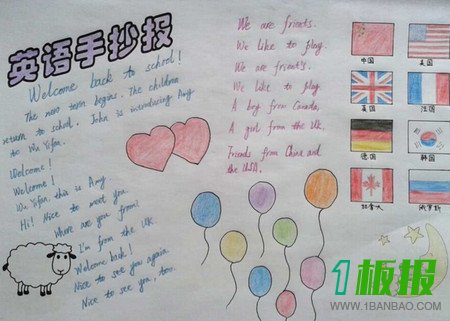 英语手抄报
Welcome back to school!
The new term begins. The children
return to school. John is introducing Amy
to Wu Yifan.
Welcome!
Welcome!
Wu Yifan, this is Amy
Hi! Nice to meet you.
Where are you from?
I'm from the UK
Welcome back!
Nice to see you again.
Nice to see you too.
We are friends.
We like to play.
We are friends.
We like to play.
A boy from Canada,
A girl from the UK,
Friends from China and
the USA.
中国
美国
英国
法国
德国
韩国
加拿大
俄罗斯
1板报
WWW.1BANBAO.COM